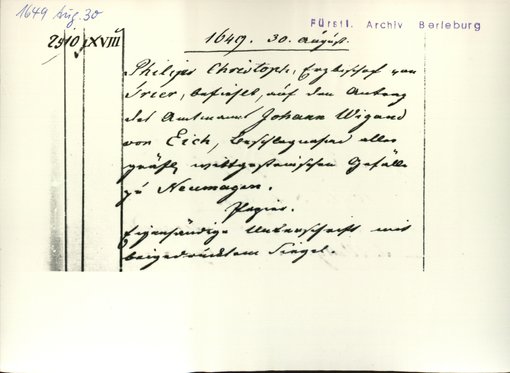 1649 Aug. 30
Fürstl. Archiv Berleburg
2910 XVIII
1649. 30. August.
Philipp Christoph, Erzbischof von
Trier, befiehlt, auf den Antrag
des Amtmanns Johann Wigand
von Eich, Beschlagnahme aller
gräfl. wittgensteinischen Gefälle
zu Neumagen.
Papier.
Eigenhändige Unterschrift mit
beigedrücktem Siegel.